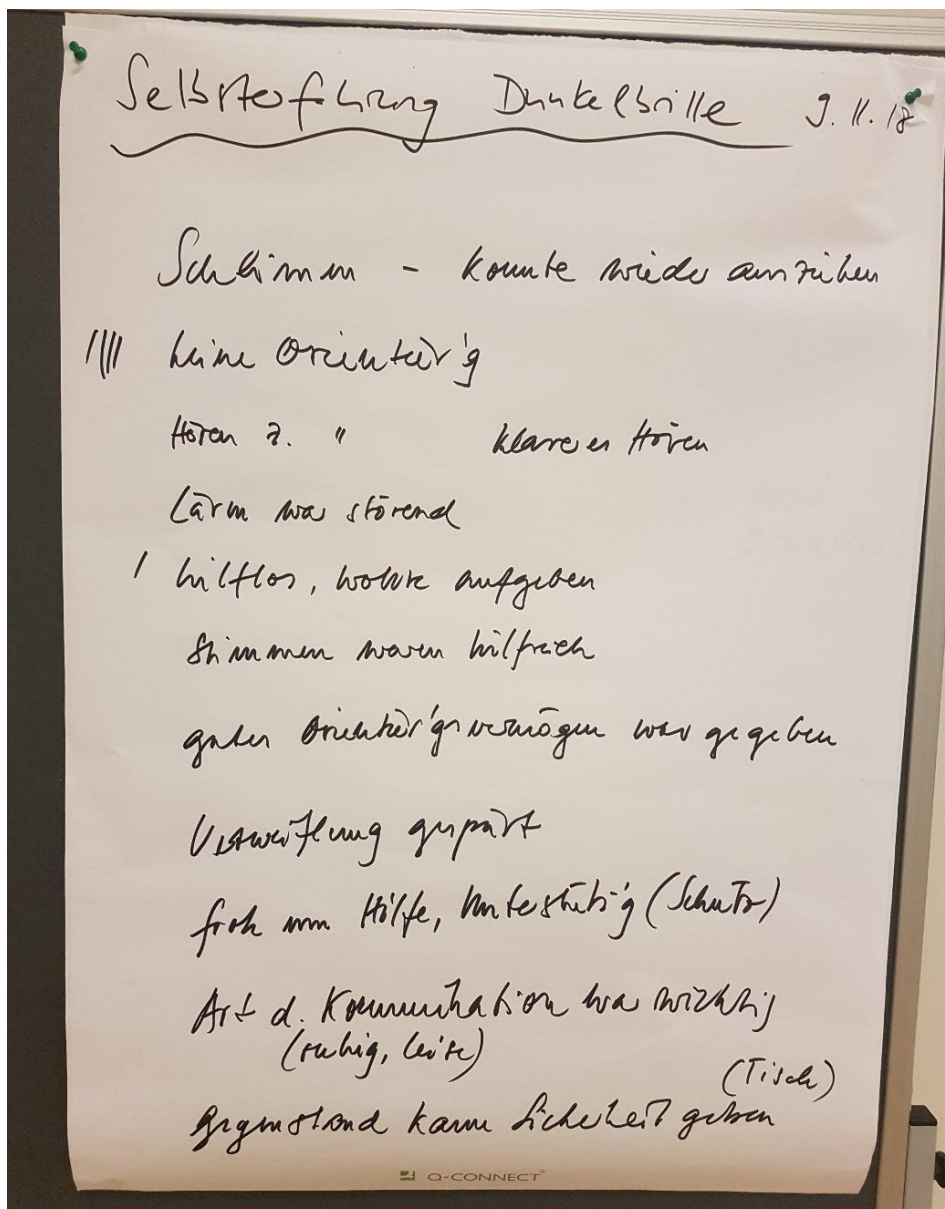 Selbsterfahrung Dunkelbrille 9.11.18
Schlimm - konnte wieder ausziehen
|||| keine Orientier'g
Hören z. " klareres Hören
Lärm war störend
| hilflos, wollte aufgeben
Stimmen waren hilfreich
gutes Orientier'gsvermögen war gegeben
Verzweiflung gespürt
froh um Hilfe, Unterstütz'g (Schutz)
Art d. Kommunikation war wichtig
(ruhig, leise)
(Tisch)
Gegenstand kann Sicherheit geben
Q-CONNECT